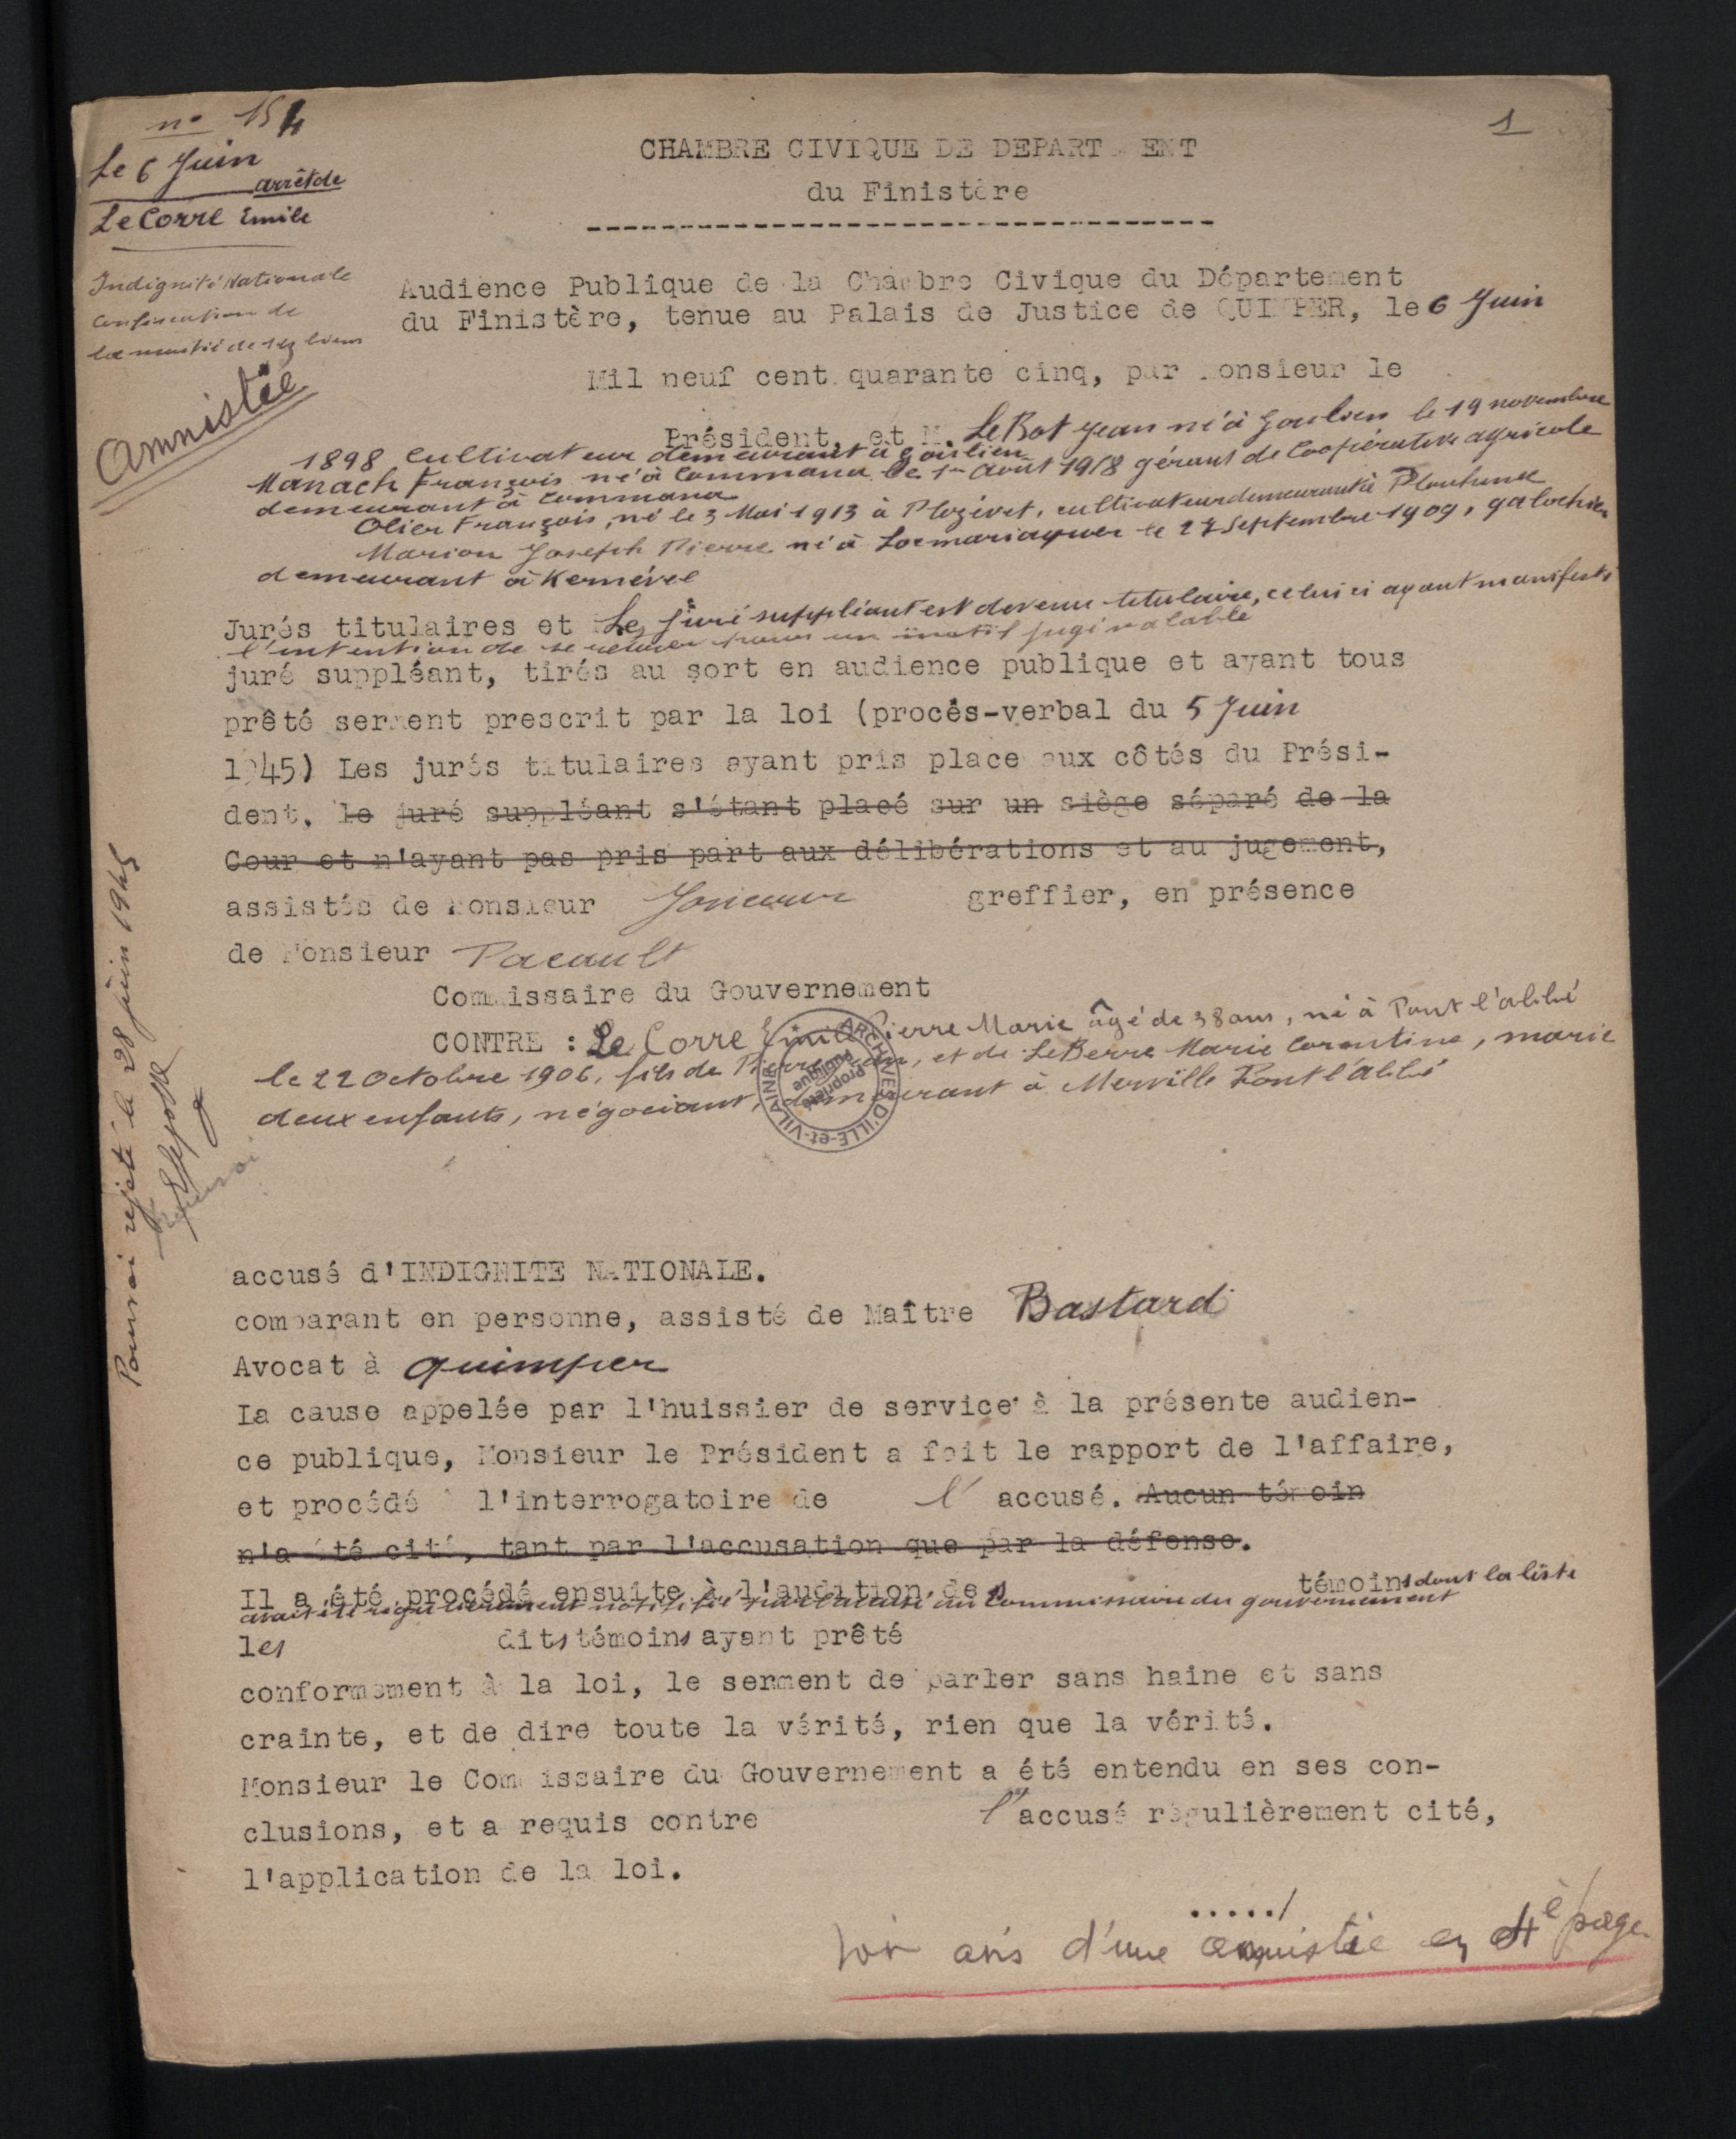 1
nº 154
Le 6 Juin
arrêt de
Le Corre Emile
Indignité Nationale
confiscation de
la moitié de ses biens
Amnistié
CHAMBRE CIVIQUE DE DEPART ENT
du Finistère
Audience Publique de la Chambre Civique du Département
du Finistère, tenue au Palais de Justice de QUIMPER, le 6 Juin
Mil neuf cent quarante cinq, par Monsieur le
Président, et M. Le Bot Jean né à Goulien le 19 novembre
1898 cultivateur demeurant à Goulien
Manach François né à Commana le 1er Août 1918 gérant de Coopérative agricole
demeurant à Commana
Olier François, né le 3 Mai 1913 à Plozévet, cultivateur demeurant à
Marion Joseph Pierre né à Locmariaquer le 27 Septembre 1909, galochier
demeurant à Kernével
Jurés titulaires et Le juré suppléant est devenu titulaire, celui ci ayant manifesté
l'intention de se récuser pour un motif jugé valable
juré suppléant, tirés au sort en audience publique et ayant tous
prêté serment prescrit par la loi (procès-verbal du 5 Juin
1945) Les jurés titulaires ayant pris place aux côtés du Prési-
dent. le juré suppléant s'étant placé sur un siège séparé de la
Cour et n'ayant pas pris part aux délibérations et au jugement,
assistés de Monsieur greffier, en présence
de Monsieur Pacault
Commissaire du Gouvernement
CONTRE : Le Corre Emile Pierre Marie âgé de 38 ans, né à Pont l'abbé
le 22 Octobre 1906, fils de Pierre Jean, et de Le Berre Marie Corentine, marié
deux enfants, négociant, demeurant à Merville Pont l'Abbé
ARCHIVES D'ILLE-et-VILAINE
Propriété publique
Pourvoi rejeté le 28 juin 1945
accusé d'INDIGNITE NATIONALE.
comparant en personne, assisté de Maître Bastard
Avocat à Quimper
La cause appelée par l'huissier de service à la présente audien-
ce publique, Monsieur le Président a fait le rapport de l'affaire,
et procédé à l'interrogatoire de l' accusé. Aucun témoin
n'a été cité, tant par l'accusation que par la défense.
Il a été procédé ensuite à l'audition des témoins dont la liste
avait été régulièrement notifiée par l'accusé au Commissaire du gouvernement
les dits témoins ayant prêté
conformement à la loi, le serment de parler sans haine et sans
crainte, et de dire toute la vérité, rien que la vérité.
Monsieur le Commissaire du Gouvernement a été entendu en ses con-
clusions, et a requis contre l'accusé régulièrement cité,
l'application de la loi.
...../
Voir avis d'une amnistie en 4è page